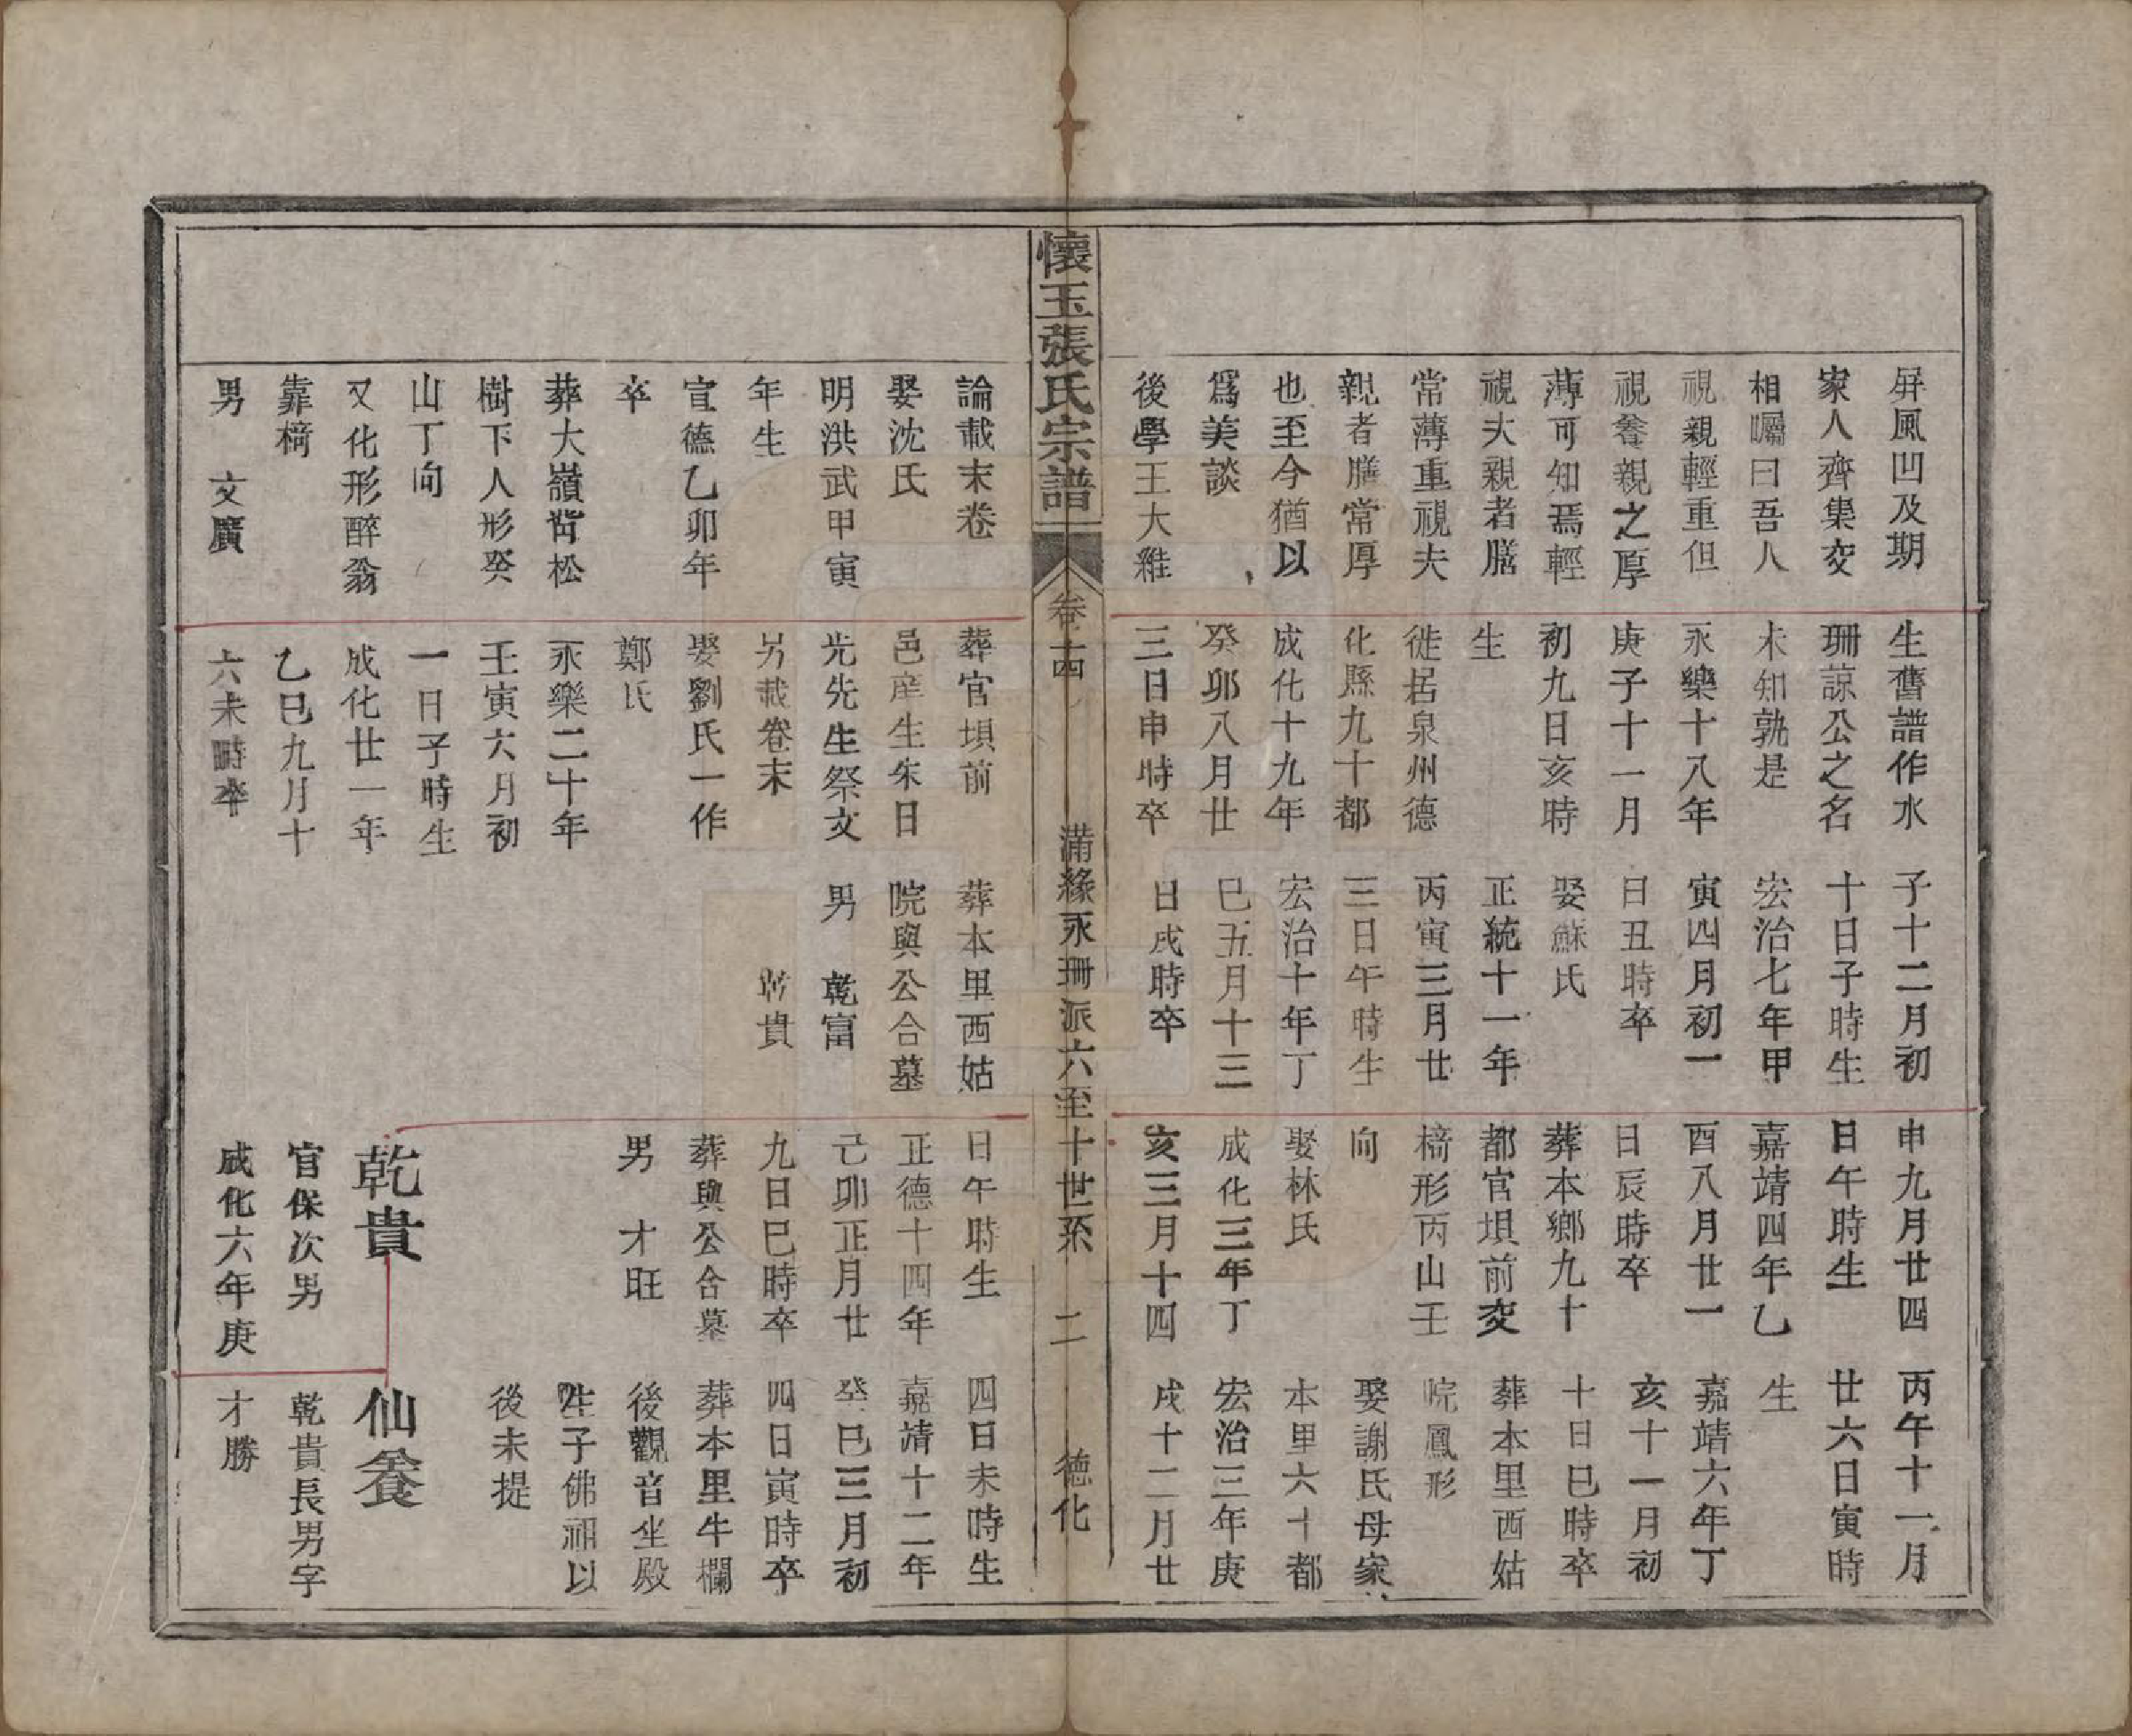 屏風凹及期
家人齊集交
相囑曰吾人
視親輕重但
視養親之厚
薄可知焉輕
視夫親者膳
常薄重視夫
親者膳常厚
也至今猶以
爲美談
後學王大維
生舊譜作水
珊諒公之名
未知孰是
永樂十八年
庚子十一月
初九日亥時
生
徙居泉州德
化縣九十都
成化十九年
癸卯八月廿
三日申時卒
子十二月初
十日子時生
宏治七年甲
寅四月初一
日丑時卒
娶蘇氏
正統十一年
丙寅三月廿
三日午時生
宏治十年丁
巳五月十三
日戌時卒
申九月廿四
日午時生
嘉靖四年乙
酉八月廿一
日辰時卒
葬本鄉九十
都官埧前交
椅形丙山壬
向
娶林氏
成化三年丁
亥三月十四
丙午十一月
廿六日寅時
生
嘉靖六年丁
亥十一月初
十日巳時卒
葬本里西姑
院鳳形
娶謝氏母家
本里六十都
宏治三年庚
戌十二月廿
懷玉張氏宗譜
卷十四
滿緣永珊派六至十世系 二 德化
論載末卷
娶沈氏
明洪武甲寅
年生
宣德乙卯年
卒
葬大嶺背松
樹下人形癸
山丁向
又化形醉翁
靠椅
男 文廣
葬官埧前
邑庠生朱日
光先生祭文
另載卷末
娶劉氏一作
鄭氏
永樂二十年
壬寅六月初
一日子時生
成化廿一年
乙巳九月十
六未時卒
葬本里西姑
院與公合墓
男 乾富
乾貴
日午時生
正德十四年
己卯正月廿
九日巳時卒
葬與公合墓
男 才旺
乾貴
官保次男
成化六年庚
四日未時生
嘉靖十二年
癸巳三月初
四日寅時卒
葬本里牛欄
後觀音坐殿
子佛祖以
後未提
仙養
乾貴長男字
才勝